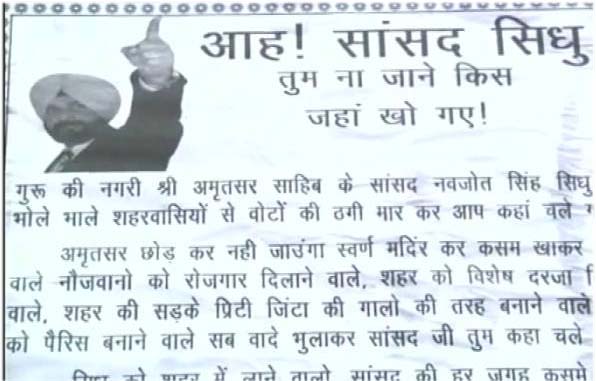 आह! सांसद सिधु
तुम ना जाने किस
जहां खो गए!
गुरू की नगरी श्री अमृतसर साहिब के सांसद नवजोत सिंह सिधु
भोले भाले शहरवासियों से वोटों की ठगी मार कर आप कहां चले
अमृतसर छोड़ कर नही जाउंगा स्वर्ण मदिंर कर कसम खाकर
वाले नौजवानो को रोजगार दिलाने वाले, शहर को विशेष दरजा
वाले, शहर की सड़के प्रिटी जिंटा की गालो की तरह बनाने वाले
को पैरिस बनाने वाले सब वादे भुलाकर सांसद जी तुम कहा चले
सिधु को शहर में लाने वालो, सांसद की हर जगह कसमे